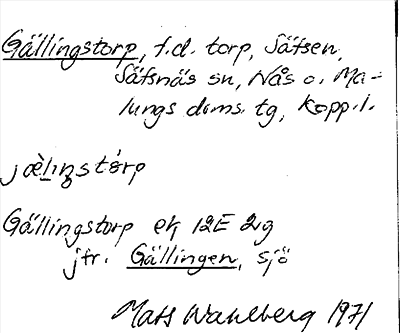 Gällingstorp, f.d. torp, Säfsen,
Säfsnäs sn, Nås o. Ma-
lungs doms. tg, Kopp. l.
jæ̀lıŋstɔ́rp
Gällingstorp ek 12E 2vg
jfr. Gällingen, sjö
Mats Wahlberg 1971